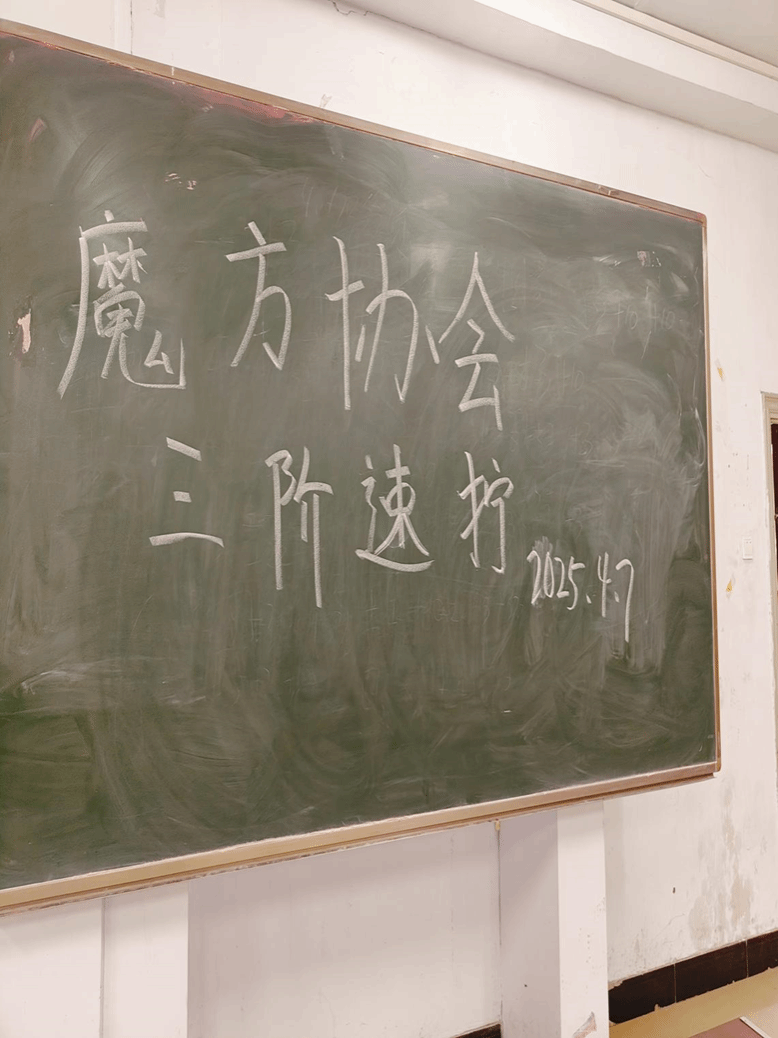 魔方协会
三阶速拧
2025.4.7